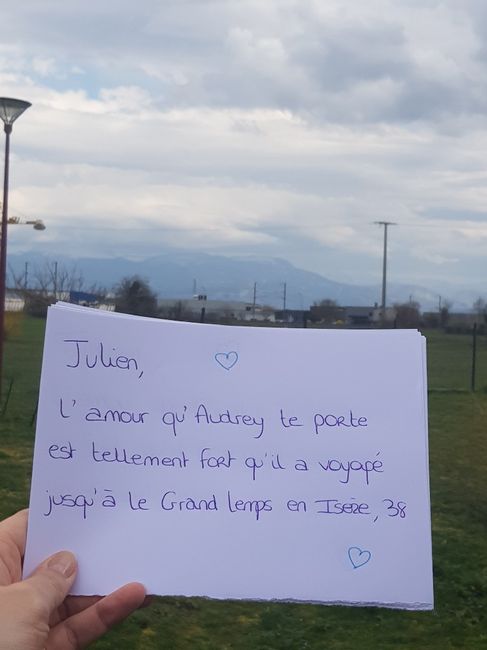 Julien,
l'amour qu'Audrey te porte
est tellement fort qu'il a voyagé
jusqu'à le Grand Lemps en Isère, 38